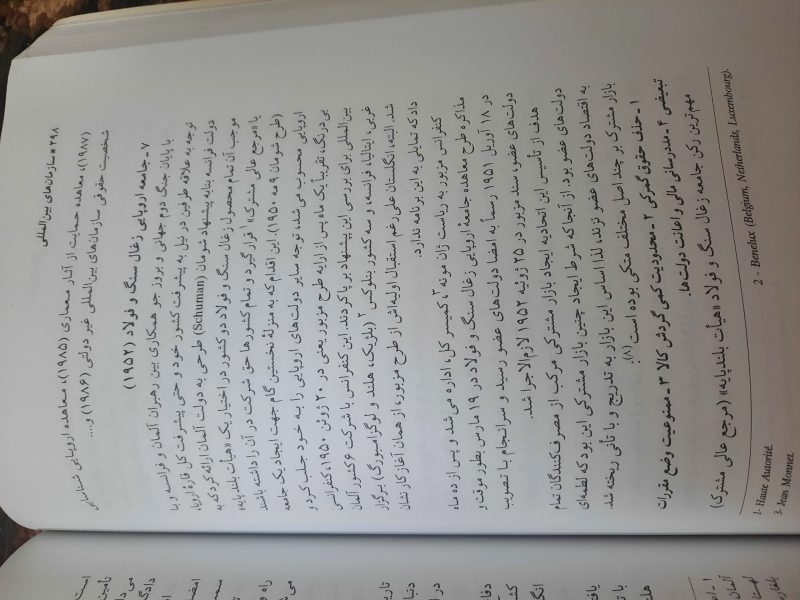 ۲۹۸ * سازمان‌های بین‌المللی
(۱۹۸۷)، معاهده حمایت از آثار معماری (۱۹۸۵)، معاهده اروپایی شناسایی
شخصیت حقوقی سازمان‌های بین‌المللی غیر دولتی (۱۹۸۶) و....
۷ ـ جامعه اروپایی زغال سنگ و فولاد (۱۹۵۲)
با پایان جنگ دوم جهانی و بروز جو همکاری بین رهبران آلمان و فرانسه و با
توجه به علاقه طرفین در نیل به پیشرفت کشور خود و حتی پیشرفت کل قاره اروپا،
دولت فرانسه بنابه پیشنهاد شومان (Schuman) طرحی به دولت آلمان ارائه کرد که به
موجب آن تمام محصول زغال سنگ و فولاد دو کشور در اختیار یک «هیأت بلند پایه»
یا «مرجع عالی مشترک»۱ قرار گیرد و تمام کشورها حق شرکت در آن را داشته باشند
(طرح شومان ۹ مه ۱۹۵۰). این اقدام که به منزلهٔ نخستین گام جهت ایجاد یک جامعه
اروپایی محسوب می شد، توجه سایر دولت‌های اروپایی را به خود جلب کرد و
بی‌درنگ، تقریباً یک ماه پس از ارایه طرح مزبور یعنی در ۲۰ ژوئن ۱۹۵۰، کنفرانسی
بین‌المللی برای بررسی این پیشنهاد بر پا کردند. این کنفرانس با شرکت ۶ کشور آلمان
غربی، ایتالیا، فرانسه، و سه کشور بنلوکس۲ (بلژیک، هلند و لوگزامبورگ) برگزار
شد. البته، انگلستان علی‌رغم استقبال اولیه‌اش از طرح مزبور، از همان آغاز کار نشان
داد که تمایلی به این برنامه ندارد.
کنفرانس مزبور به ریاست ژان مونه۳، کمیسر کل، اداره می شد و پس از ده ماه
مذاکره طرح معاهده جامعهٔ اروپایی زغال سنگ و فولاد در ۱۹ مارس بطور موقت و
در ۱۸ آوریل ۱۹۵۱ رسماً به امضا دولت‌های عضو رسید و سرانجام با تصویب
دولت‌های عضو، سند مزبور در ۲۵ ژوئیه ۱۹۵۲ لازم‌الاجرا شد.
هدف از تأسیس این اتحادیه ایجاد بازار مشترکی مرکب از مصرف‌کنندگان تمام
دولت‌های عضو بود. از آنجا که شرط ایجاد چنین بازار مشترکی این بود که لطمه‌ای
به اقتصاد دولت‌های عضو نزند، لذا اساس این بازار به تدریج و با تأنی ریخته شد
بازار مشترک بر چند اصل مختلف متکی بوده است(۸):
۱ ـ حذف حقوق گمرکی ۲ ـ محدودیت کمی گردش کالا ۳ ـ ممنوعیت وضع مقررات
تبعیضی ۴ ـ مددرسانی مالی و اعانت دولت‌ها.
مهم ترین رکن جامعه زغال سنگ و فولاد «هیأت بلندپایه» (مرجع عالی مشترک)
1. Haute Autorité.
2 - Benelux (Belgium, Netherlands, Luxembourg).
3. Jean Monnet.